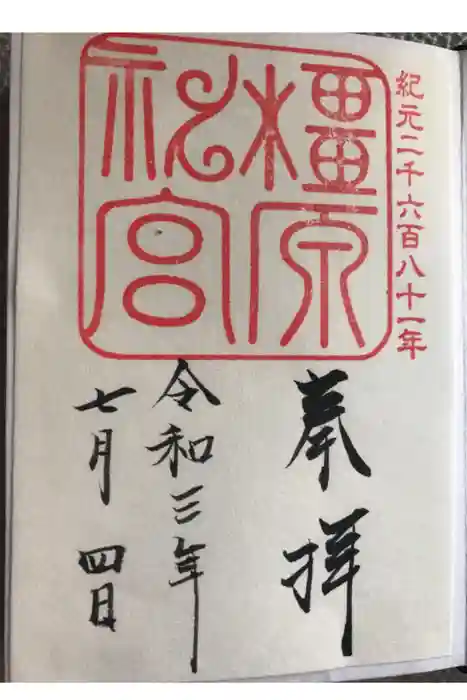 紀元二千六百八十一年
橿原
神宮
奉拝
令和三年
七月四日